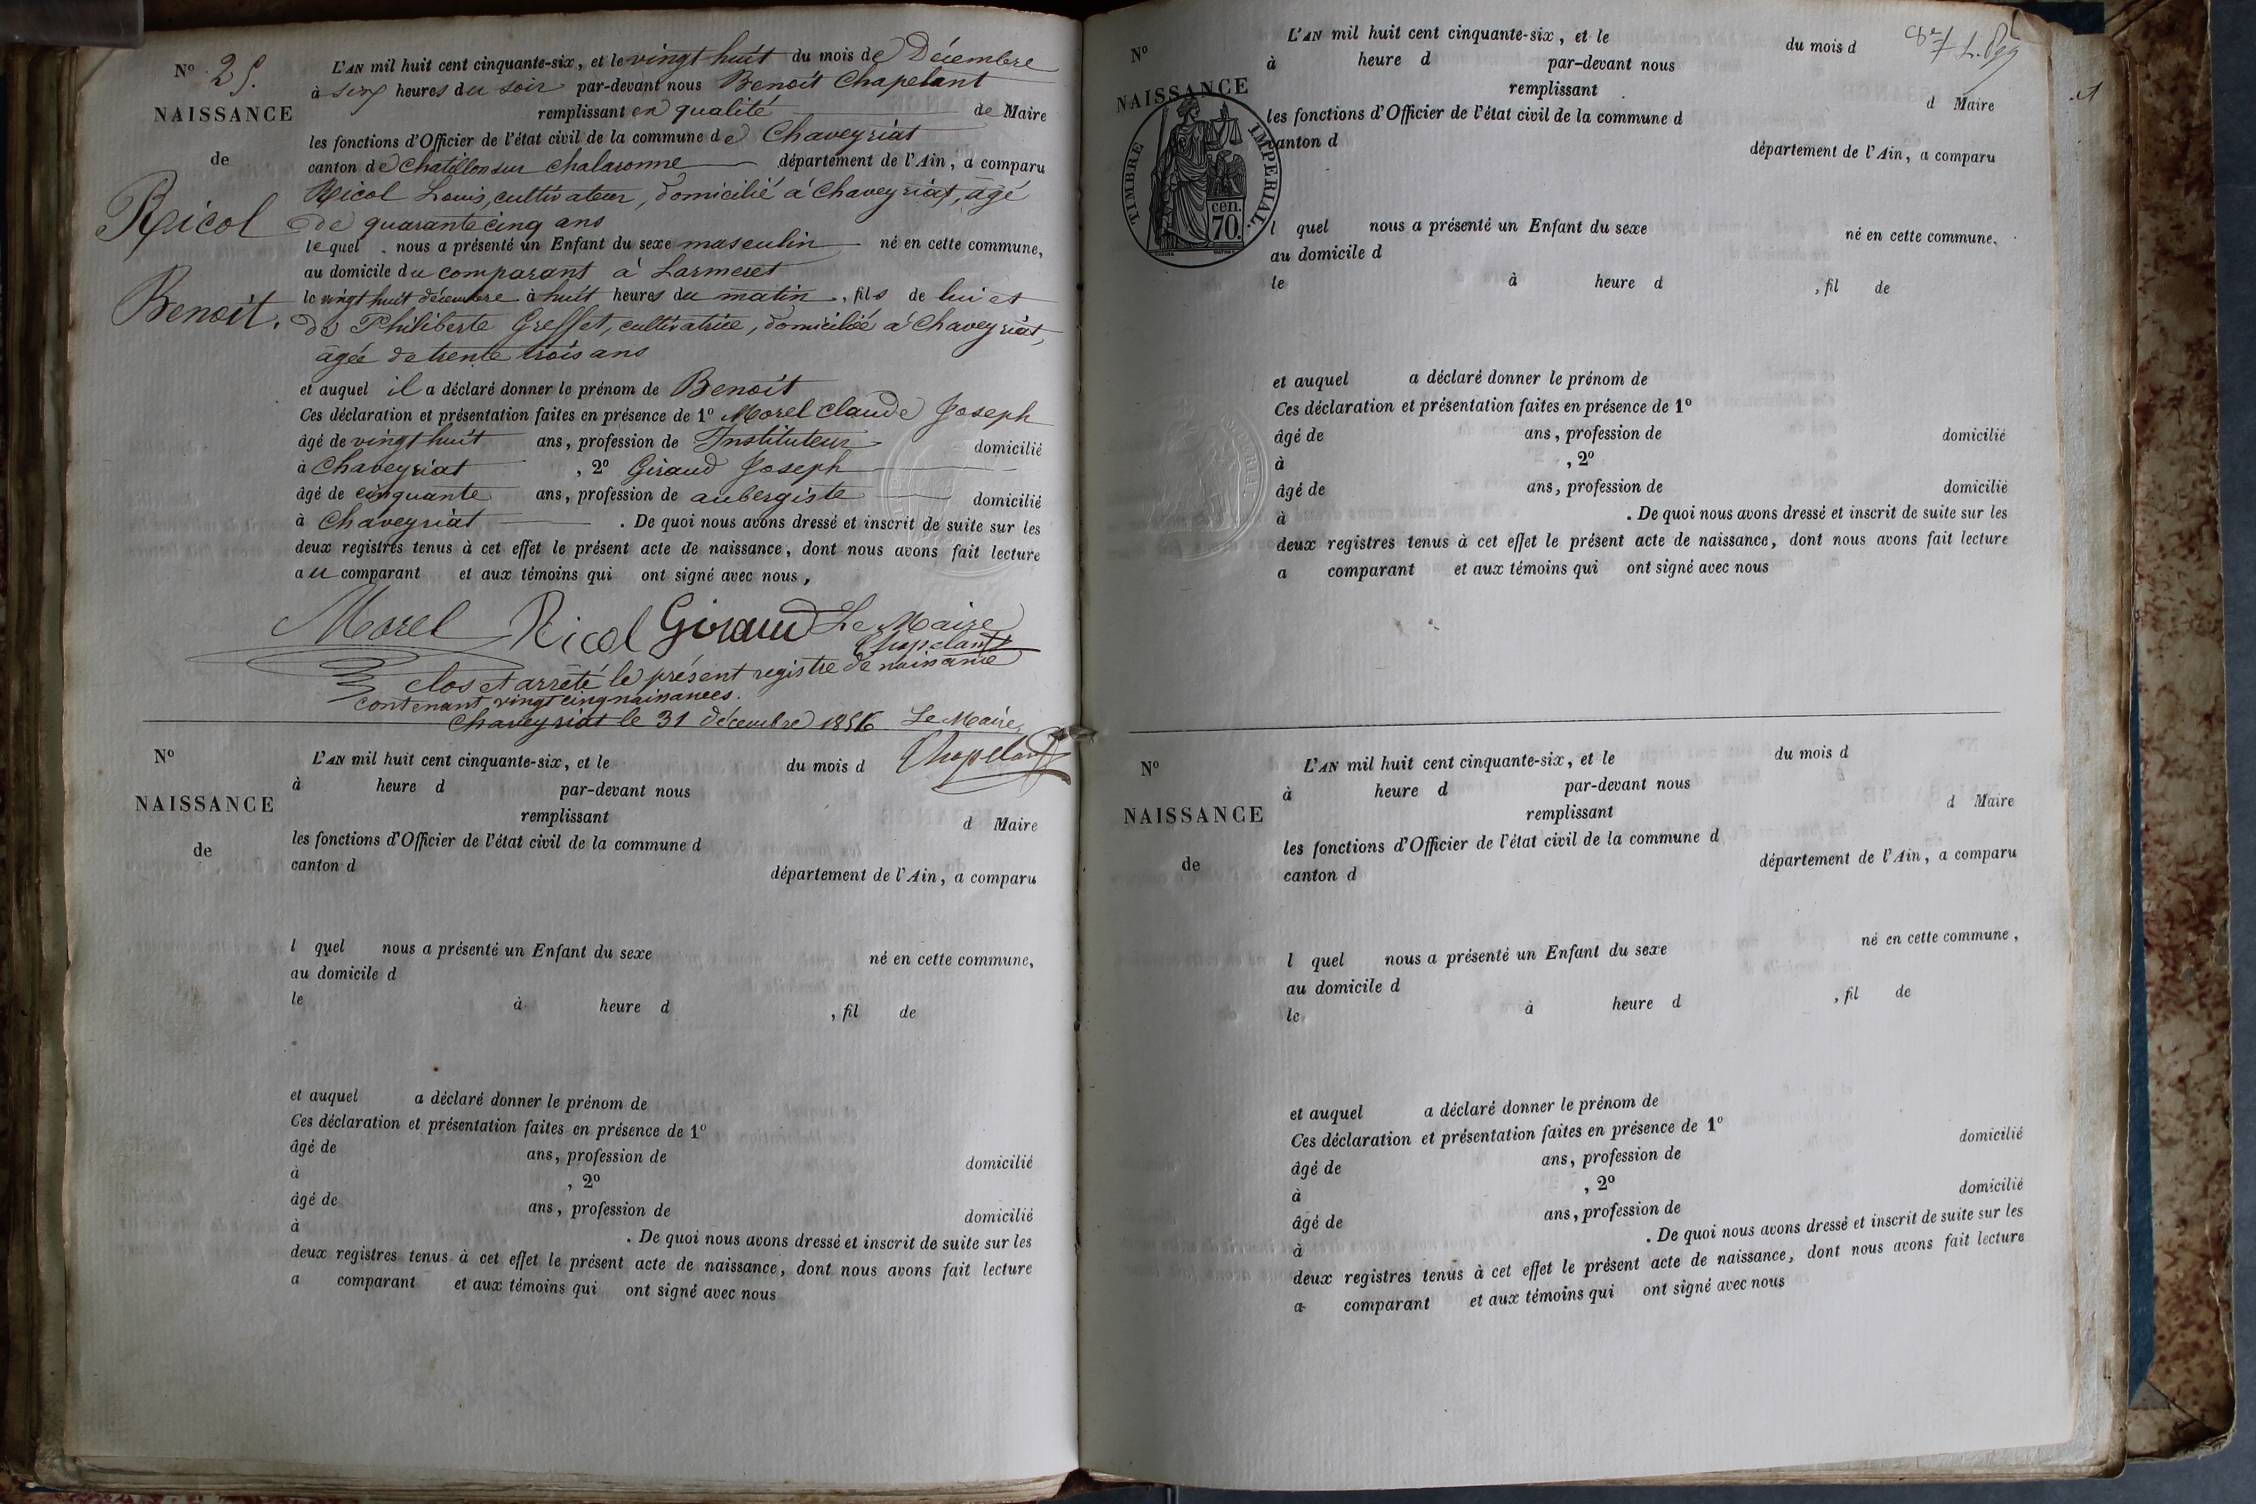 N° 25.
NAISSANCE
de
Ricol
Benoit.
L'AN mil huit cent cinquante-six, et le vingt huit du mois de Décembre
à six heures du soir par-devant nous Benoit Chapelant
remplissant en qualité de Maire
les fonctions d'Officier de l'état civil de la commune de Chaveyriat
canton de Chatillon sur Chalaronne département de l'Ain, a comparu
Ricol Louis, cultivateur, domicilié à Chaveyriat, âgé
de quarante cinq ans
lequel nous a présenté un Enfant du sexe masculin né en cette commune,
au domicile du comparant à
le vingt huit décembre à huit heures du matin, fils de lui et
de Philiberte Greffet, cultivatrice, domiciliée à Chaveyriat,
âgée de trente trois ans
et auquel il a déclaré donner le prénom de Benoit
Ces déclaration et présentation faites en présence de 1° Morel Claude Joseph
âgé de vingt huit ans, profession de Instituteur domicilié
à Chaveyriat, 2° Giraud Joseph
âgé de cinquante ans, profession de aubergiste domicilié
à Chaveyriat. De quoi nous avons dressé et inscrit de suite sur les
deux registres tenus à cet effet le présent acte de naissance, dont nous avons fait lecture
au comparant et aux témoins qui ont signé avec nous,
Morel Ricol Giraud Le Maire
Chapelant
clos et arrêté le présent registre de naissance
contenant vingt cinq naissances.
Chaveyriat le 31 décembre 1856 Le Maire,
Chapelant
N°
NAISSANCE
de
L'AN mil huit cent cinquante-six, et le du mois d
à heure d par-devant nous
remplissant d Maire
les fonctions d'Officier de l'état civil de la commune d
canton d département de l'Ain, a comparu
l quel nous a présenté un Enfant du sexe né en cette commune,
au domicile d
le à heure d , fil de
et auquel a déclaré donner le prénom de
Ces déclaration et présentation faites en présence de 1°
âgé de ans, profession de domicilié
à , 2°
âgé de ans, profession de domicilié
à . De quoi nous avons dressé et inscrit de suite sur les
deux registres tenus à cet effet le présent acte de naissance, dont nous avons fait lecture
a comparant et aux témoins qui ont signé avec nous
N°
NAISSANCE
TIMBRE IMPERIAL.
cen.
70.
L'AN mil huit cent cinquante-six, et le du mois d
à heure d par-devant nous
remplissant d Maire
les fonctions d'Officier de l'état civil de la commune d
canton d département de l'Ain, a comparu
l quel nous a présenté un Enfant du sexe né en cette commune,
au domicile d
le à heure d , fil de
et auquel a déclaré donner le prénom de
Ces déclaration et présentation faites en présence de 1°
âgé de ans, profession de domicilié
à , 2°
âgé de ans, profession de domicilié
à . De quoi nous avons dressé et inscrit de suite sur les
deux registres tenus à cet effet le présent acte de naissance, dont nous avons fait lecture
a comparant et aux témoins qui ont signé avec nous
N°
NAISSANCE
de
L'AN mil huit cent cinquante-six, et le du mois d
à heure d par-devant nous
remplissant d Maire
les fonctions d'Officier de l'état civil de la commune d
canton d département de l'Ain, a comparu
l quel nous a présenté un Enfant du sexe né en cette commune,
au domicile d
le à heure d , fil de
et auquel a déclaré donner le prénom de
Ces déclaration et présentation faites en présence de 1°
âgé de ans, profession de domicilié
à , 2°
âgé de ans, profession de domicilié
à . De quoi nous avons dressé et inscrit de suite sur les
deux registres tenus à cet effet le présent acte de naissance, dont nous avons fait lecture
a comparant et aux témoins qui ont signé avec nous